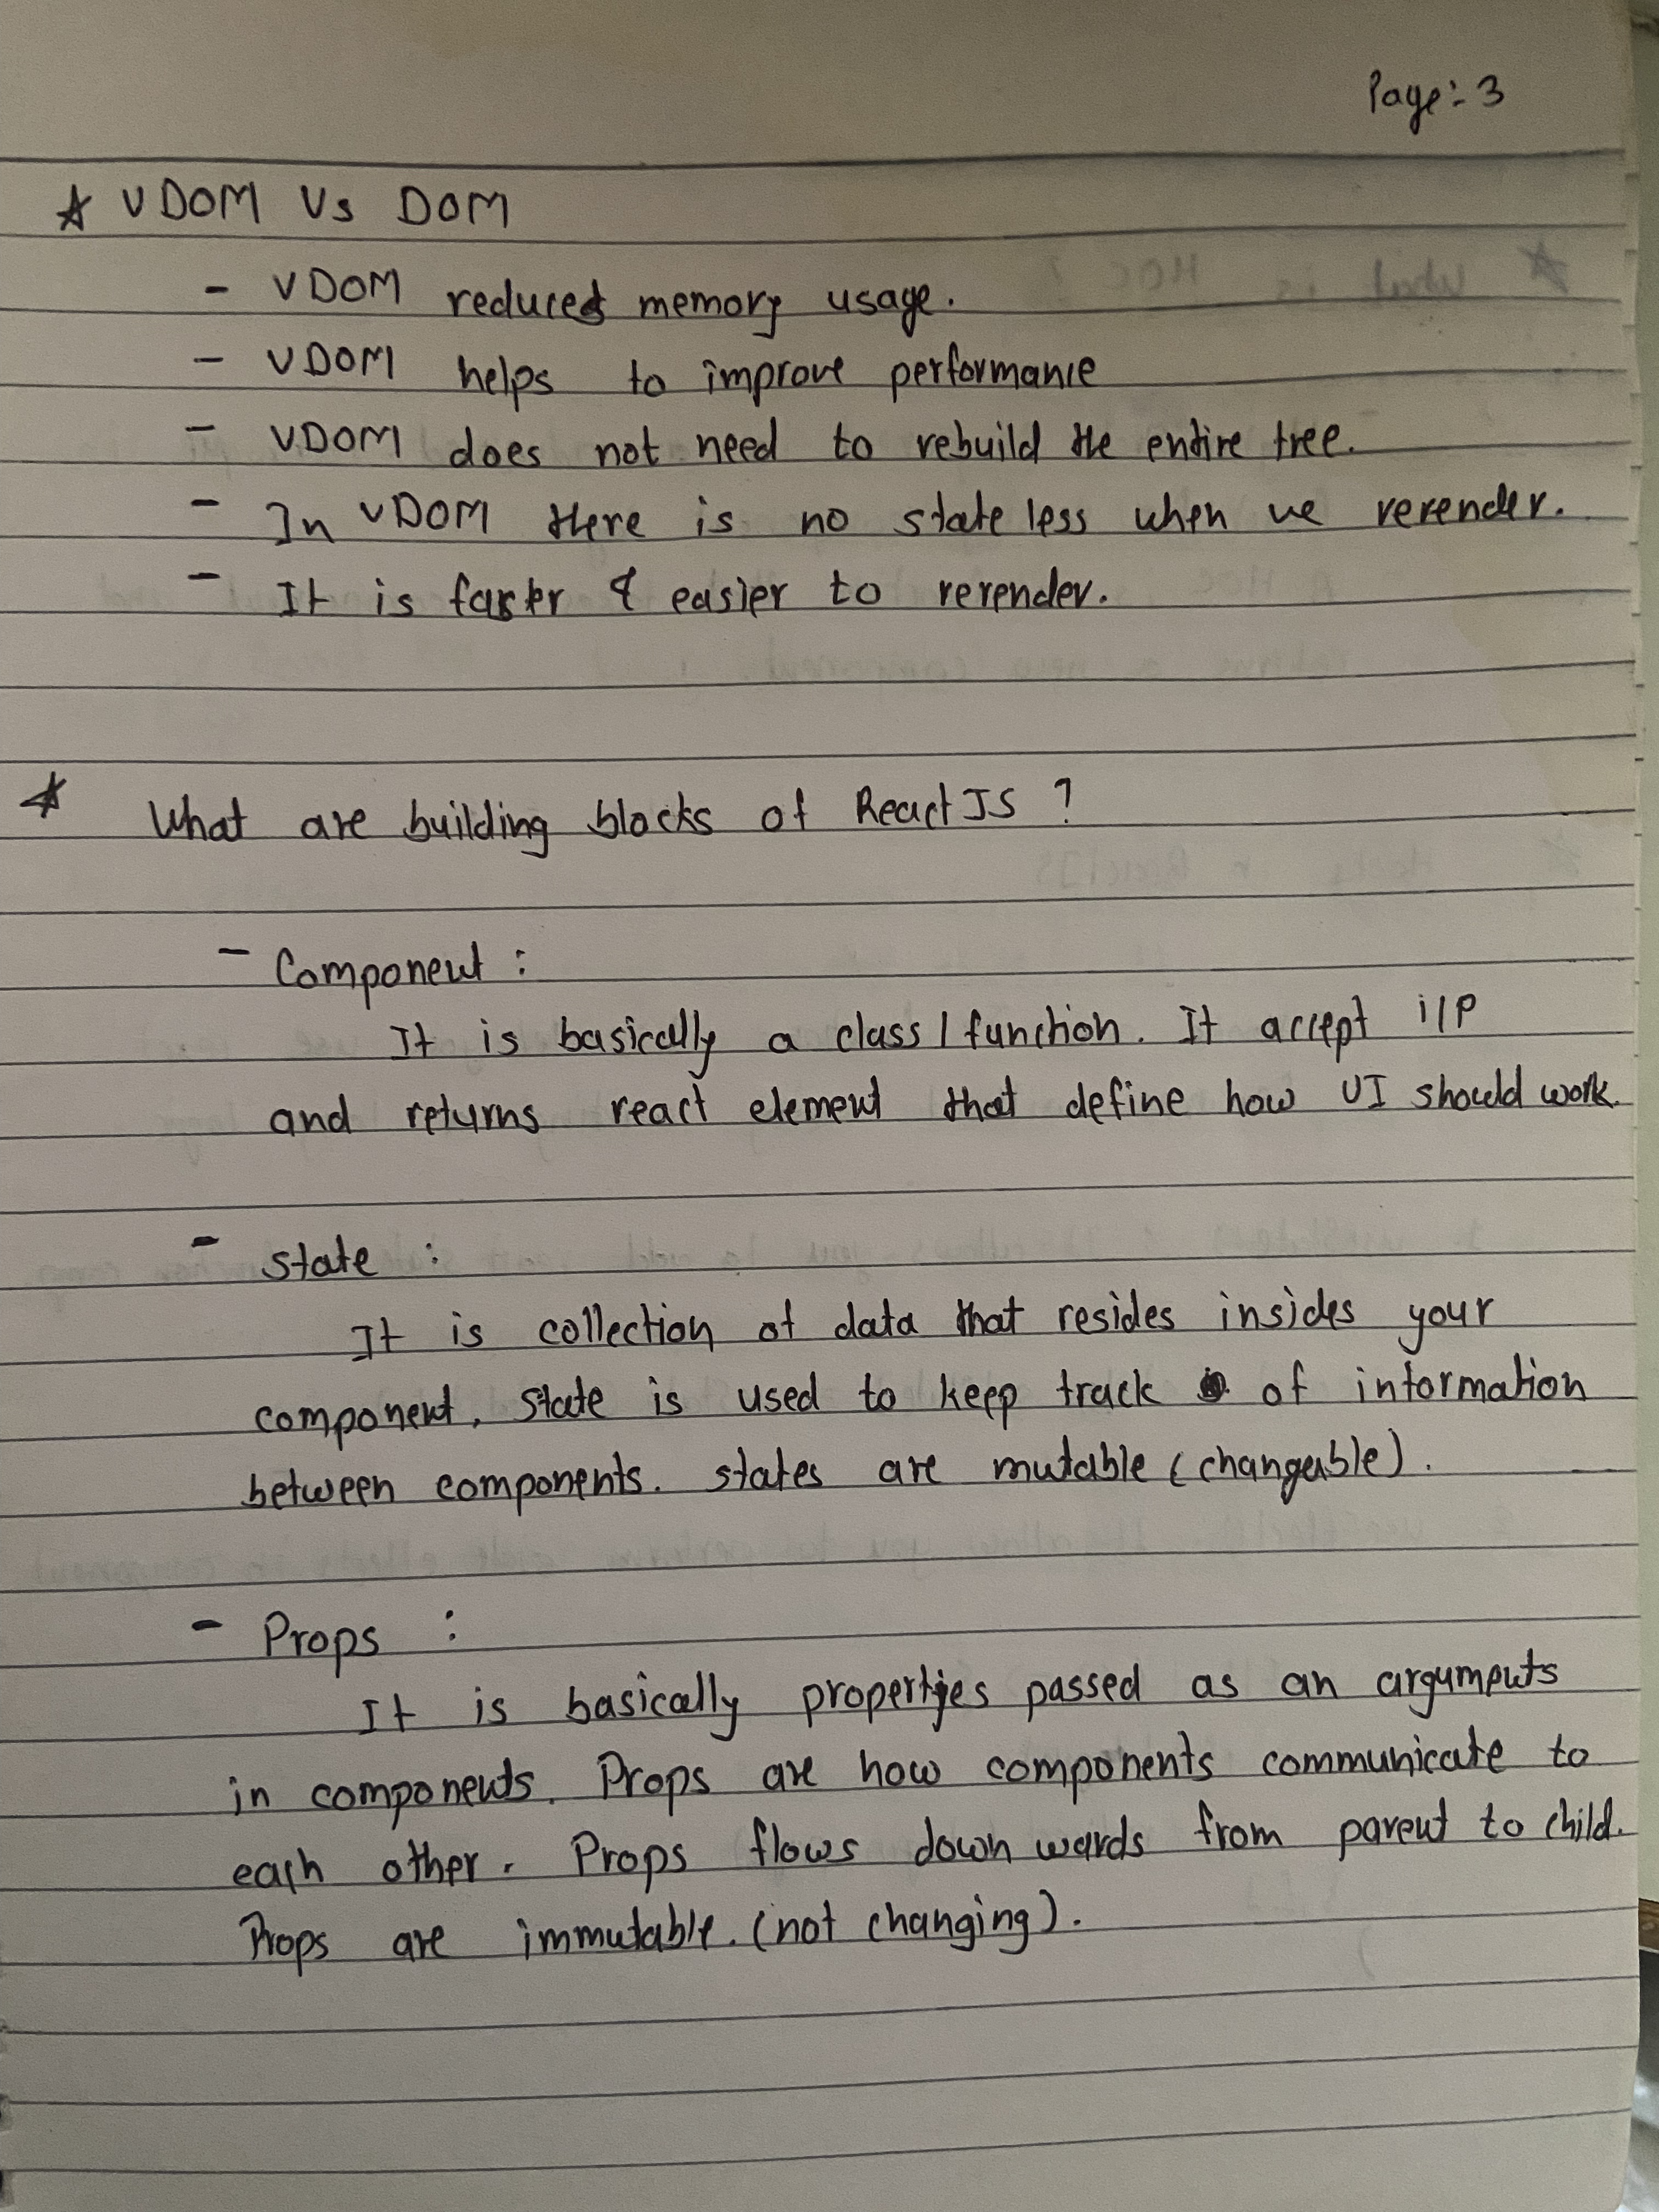 Page:- 3
☆ VDOM Vs DOM
- VDOM reduces memory usage.
- VDOM helps to improve performance
- VDOM does not need to rebuild the entire tree.
- In VDOM there is no state less when we rerender.
- It is faster & easier to rerender.
☆ What are building blocks of ReactJS ?
- Component :
It is basically a class / function. It accept i/p
and returns react element that define how UI should work.
- state :
It is collection of data that resides insides your
component. State is used to keep track of information
between components. states are mutable (changeable).
- Props :
It is basically properties passed as an arguments
in components. Props are how components communicate to
each other. Props flows down wards from parent to child.
Props are immutable. (not changing).